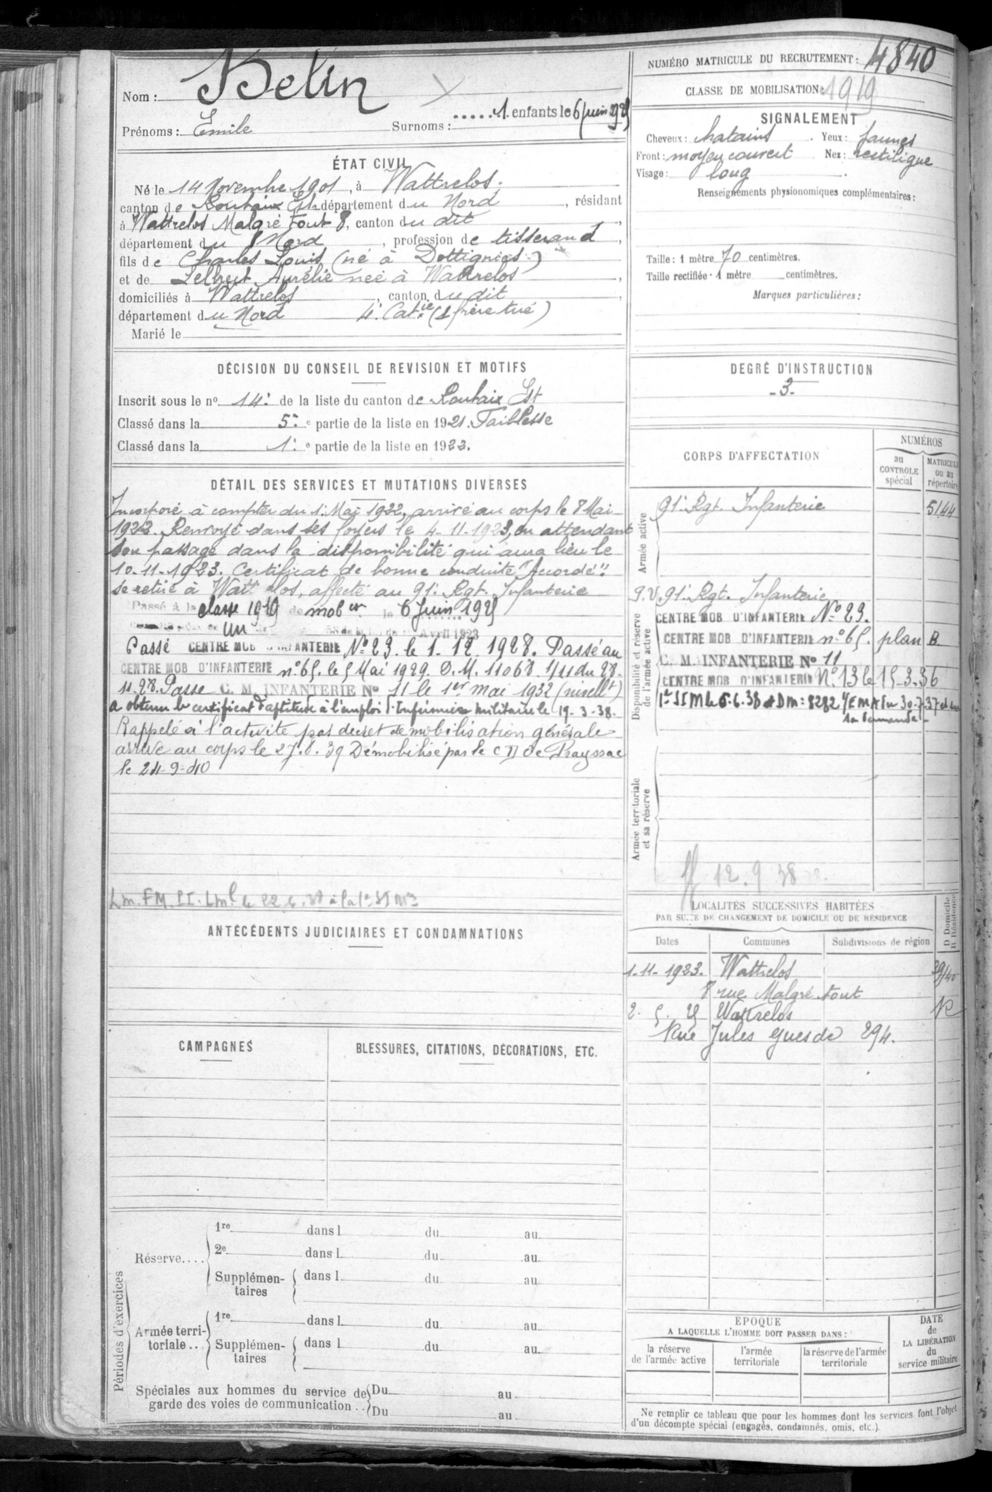 Nom : Belin
1 enfants le 6 juin 1929
Prénoms : Emile Surnoms :
ÉTAT CIVIL
Né le 14 Novembre 1901, à Wattrelos.
canton de Roubaix Est département du Nord, résidant
à Wattrelos Malgré Tout 8, canton du dit
département du Nord, profession de tisserand,
fils de Charles Louis (né à Dottignies)
et de Aurélie née à Wattrelos
domiciliés à Wattrelos, canton du dit
département du Nord 4e Catie (1 frère tué)
Marié le
DÉCISION DU CONSEIL DE REVISION ET MOTIFS
Inscrit sous le no 14e de la liste du canton de Roubaix Est
Classé dans la 5e e partie de la liste en 1921. Faiblesse
Classé dans la 1e e partie de la liste en 1923.
DÉTAIL DES SERVICES ET MUTATIONS DIVERSES
Incorporé à compter du 1er Mai 1922, arrivé au corps le 7 Mai
1922. Renvoyé dans ses foyers le 4-11-1923, en attendant
son passage dans la disponibilité qui aura lieu le
10-11-1923. Certificat de bonne conduite "Accordé".
se retire à Wattrelos, affecté au 91e Rgt. Infanterie
Passé à la classe 1919 de mob le 6 Juin 1929
un Avril 1923
Passé CENTRE MOB D'INFANTERIE No 23. le 1. 12. 1928. Passé au
CENTRE MOB D'INFANTERIE no 65. le 5 Mai 1929. D.M. 11068 1/11 du 28.
11.28. Passé C. M. INFANTERIE No 11 le 1er mai 1932
a obtenu le certificat d'aptitude à l'emploi d'Infirmier militaire le 19-3-38.
Rappelé à l'activité par décret de mobilisation générale
arrivé au corps le 27.8.39 Démobilisé par le C D de Prayssac
le 24-9-40
ANTÉCÉDENTS JUDICIAIRES ET CONDAMNATIONS
CAMPAGNES
BLESSURES, CITATIONS, DÉCORATIONS, ETC.
Périodes d'exercices
Réserve.... 1re dans l du au
2e dans l du au
Supplémentaires dans l du au
Armée territoriale... 1re dans l du au
Supplémentaires dans l du au
Spéciales aux hommes du service de Du au
garde des voies de communication .. Du au
NUMÉRO MATRICULE DU RECRUTEMENT : 4840
CLASSE DE MOBILISATION : 1919
SIGNALEMENT
Cheveux : chatains Yeux : jaunes
Front : moyen couvert Nez : rectiligne
Visage : long
Renseignements physionomiques complémentaires :
Taille : 1 mètre 70 centimètres.
Taille rectifiée : 1 mètre centimètres.
Marques particulières :
DEGRÉ D'INSTRUCTION
-3-
CORPS D'AFFECTATION
NUMÉROS
au CONTROLE spécial
MATRICULE ou au répertoire
Armée active
91e Rgt. Infanterie 5144
Disponibilité et réserve de l'armée active
91e Rgt. Infanterie
CENTRE MOB D'INFANTERIE No 23.
CENTRE MOB D'INFANTERIE no 65. plan B
C. M. INFANTERIE No 11
CENTRE MOB D'INFANTERIE No 13 le 15.3.36
Armée territoriale et sa réserve
12.9.38
LOCALITÉS SUCCESSIVES HABITÉES
PAR SUITE DE CHANGEMENT DE DOMICILE OU DE RÉSIDENCE
Dates Communes Subdivisions de région D Domicile R Résidence
1-11-1923. Wattrelos
8 rue Malgré Tout
Wattrelos R
Rue Jules Guesde 294.
ÉPOQUE
A LAQUELLE L'HOMME DOIT PASSER DANS :
la réserve de l'armée active
l'armée territoriale
la réserve de l'armée territoriale
DATE de LA LIBÉRATION du service militaire
Ne remplir ce tableau que pour les hommes dont les services font l'objet
d'un décompte spécial (engagés, condamnés, omis, etc.).